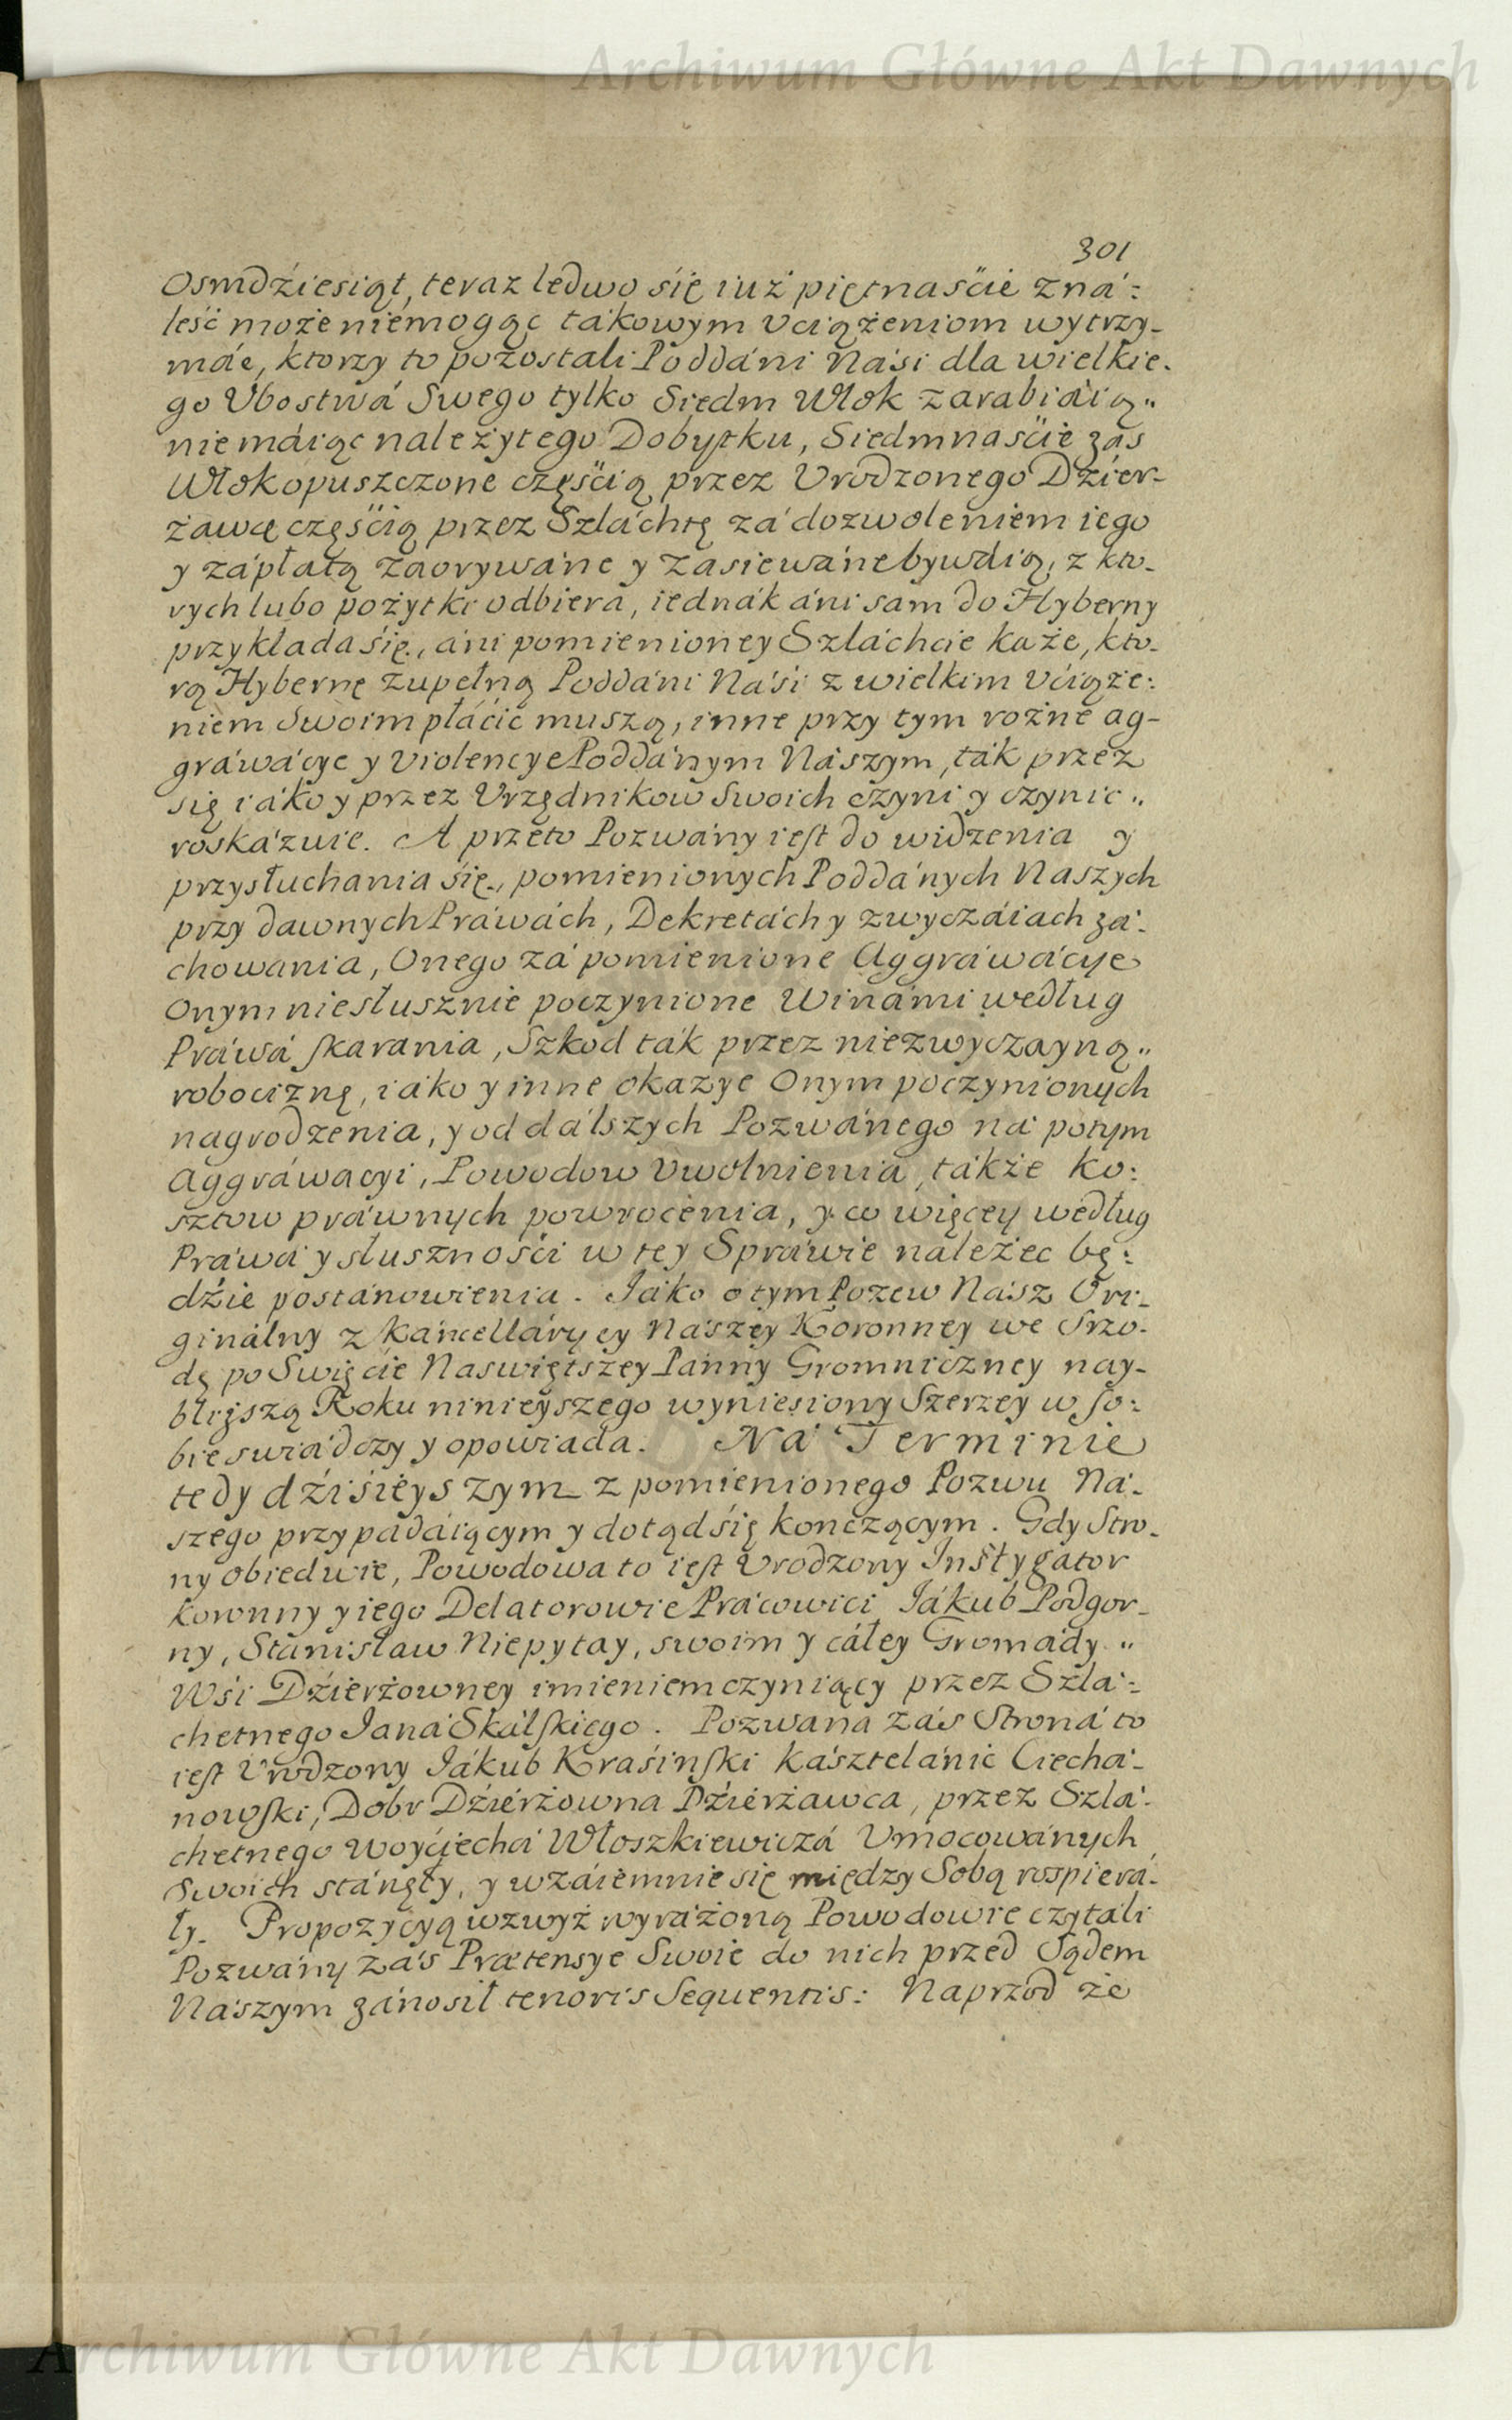 Archiwum Główne Akt Dawnych
301
Osmdźiesiąt, teraz ledwo śię iuż piętnaśćie zná:
leść może niemogąc tákowym vciążeniom wytrzy-
máć, ktorzy to pozostali Poddáni Náśi dla wielkie-
go Vbostwá Swego tylko Siedm Włok zarabiáią„
nie máiąc należytego Dobytku, Siedmnaśćie zás
Włok opuszczone częśćią przez Vrodzonego Dźier-
żawcę częśćią przez Szláchtę zá dozwoleniem iego
y zápłatą zaorywáne y zasiewáne bywáią, z kto-
rych lubo pożytki odbiera, iednák áni sam do Hyberny
przykłada się, áni pomienioney Szláchcie każe, kto-
rą Hybernę zupełną Poddáni Náśi z wielkim vćiąże:
niem Swoim płáćić muszą, inne przy tym rożne ag-
gráwácye y violencye Poddánym Nászym, ták przez
się iáko y przez Vrzędnikow Swoich czyni y czynic„
roskázuie. A przeto Pozwány iest do widzenia y
przysłuchania śię, pomienionych Poddánych Naszych
przy dawnych Práwách, Dekretách y zwyczáiach zá-
chowania, Onego zá pomienione Aggráwácye
Onym niesłusznie poczynione Winámi według
Práwá skarania, Szkod ták przez niezwyczayną„
robociznę, iáko y inne okazye Onym poczynionych
nagrodzenia, y od dálszych Pozwánego ná potym
Aggráwacyi, Powodow vwolnienia, tákże ko:
sztow práwnych powrocenia, y co więcey według
Práwá y słusznośći w tey Spráwie należec bę:
dźie postánowienia. Jáko o tym Pozew Nász Ori-
ginálny z Káncelláryey Nászey Koronney we Srzo-
dę po Swięćie Naswiętszey Pánny Gromniczney nay-
bliższą Roku ninieyszego wyniesiony Szerzey w so:
bie swiádczy y opowiada. Ná Terminie
tedy dźiśieyszym z pomienionego Pozwu Ná-
szego przypádáiącym y dotąd śię konczącym. Gdy Stro-
ny obiedwie, Powodowa to iest Vrodzony Instygator
koronny y iego Delatorowie Prácowici Jákub Podgor-
ny, Stánisław Niepytay, swoim y cáłey Gromády„
Wśi Dźierżowney imieniem czyniący przez Szlá:
chetnego Janá Skálskiego. Pozwana zás Stroná to
iest Vrodzony Jákub Kraśinski kásztelánic Ciechá-
nowski, Dobr Dźierżowna Dźierżawca, przez Szlá-
chetnego Woyćiechá Włoszkiewiczá Vmocowánych
Swoich stánęły, y wzáiemnie się między Sobą rospierá-
ły. Propozycyą wzwyż wyráżoną Powodowie czytáli
Pozwány zás Prætensye Swoie do nich przed Sądem
Nászym zánosił tenoris Sequentis: Naprzod że
Archiwum Główne Akt Dawnych